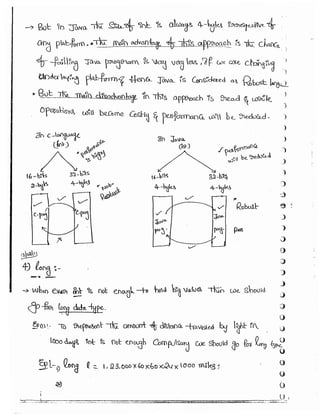 → But in Java the size of int is always 4-bytes irrespective of
any platform. • The main advantage of this approach is the chance
of failling Java program is very very less, If we are changing
underlaying platforms Hence Java is Considered as Robust
• But the main disadvantage in this approach is read & write
operations will become Costly & performance will be reduced.
In c-language
(int)
performance is high
In Java
(int)
performance will be reduced
16-bits
2-bytes
32-bits
4-bytes
Robust
4-bytes
32-bits
4-bytes
Robust
c-prog
c-prog
Java prog.
Java prog
4) long :-
→ When Ever int is not enough to hold big values then we should
go for long data type.
Ex①:- To represent the amount of distance travelled by light in
1000 days int is not enough Compulsory we should go for long type
long l = 1,23,000x60x60x24x1000 miles;